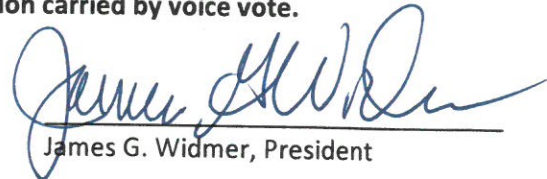 ion carried by voice vote.
James G. Widmer
James G. Widmer, President